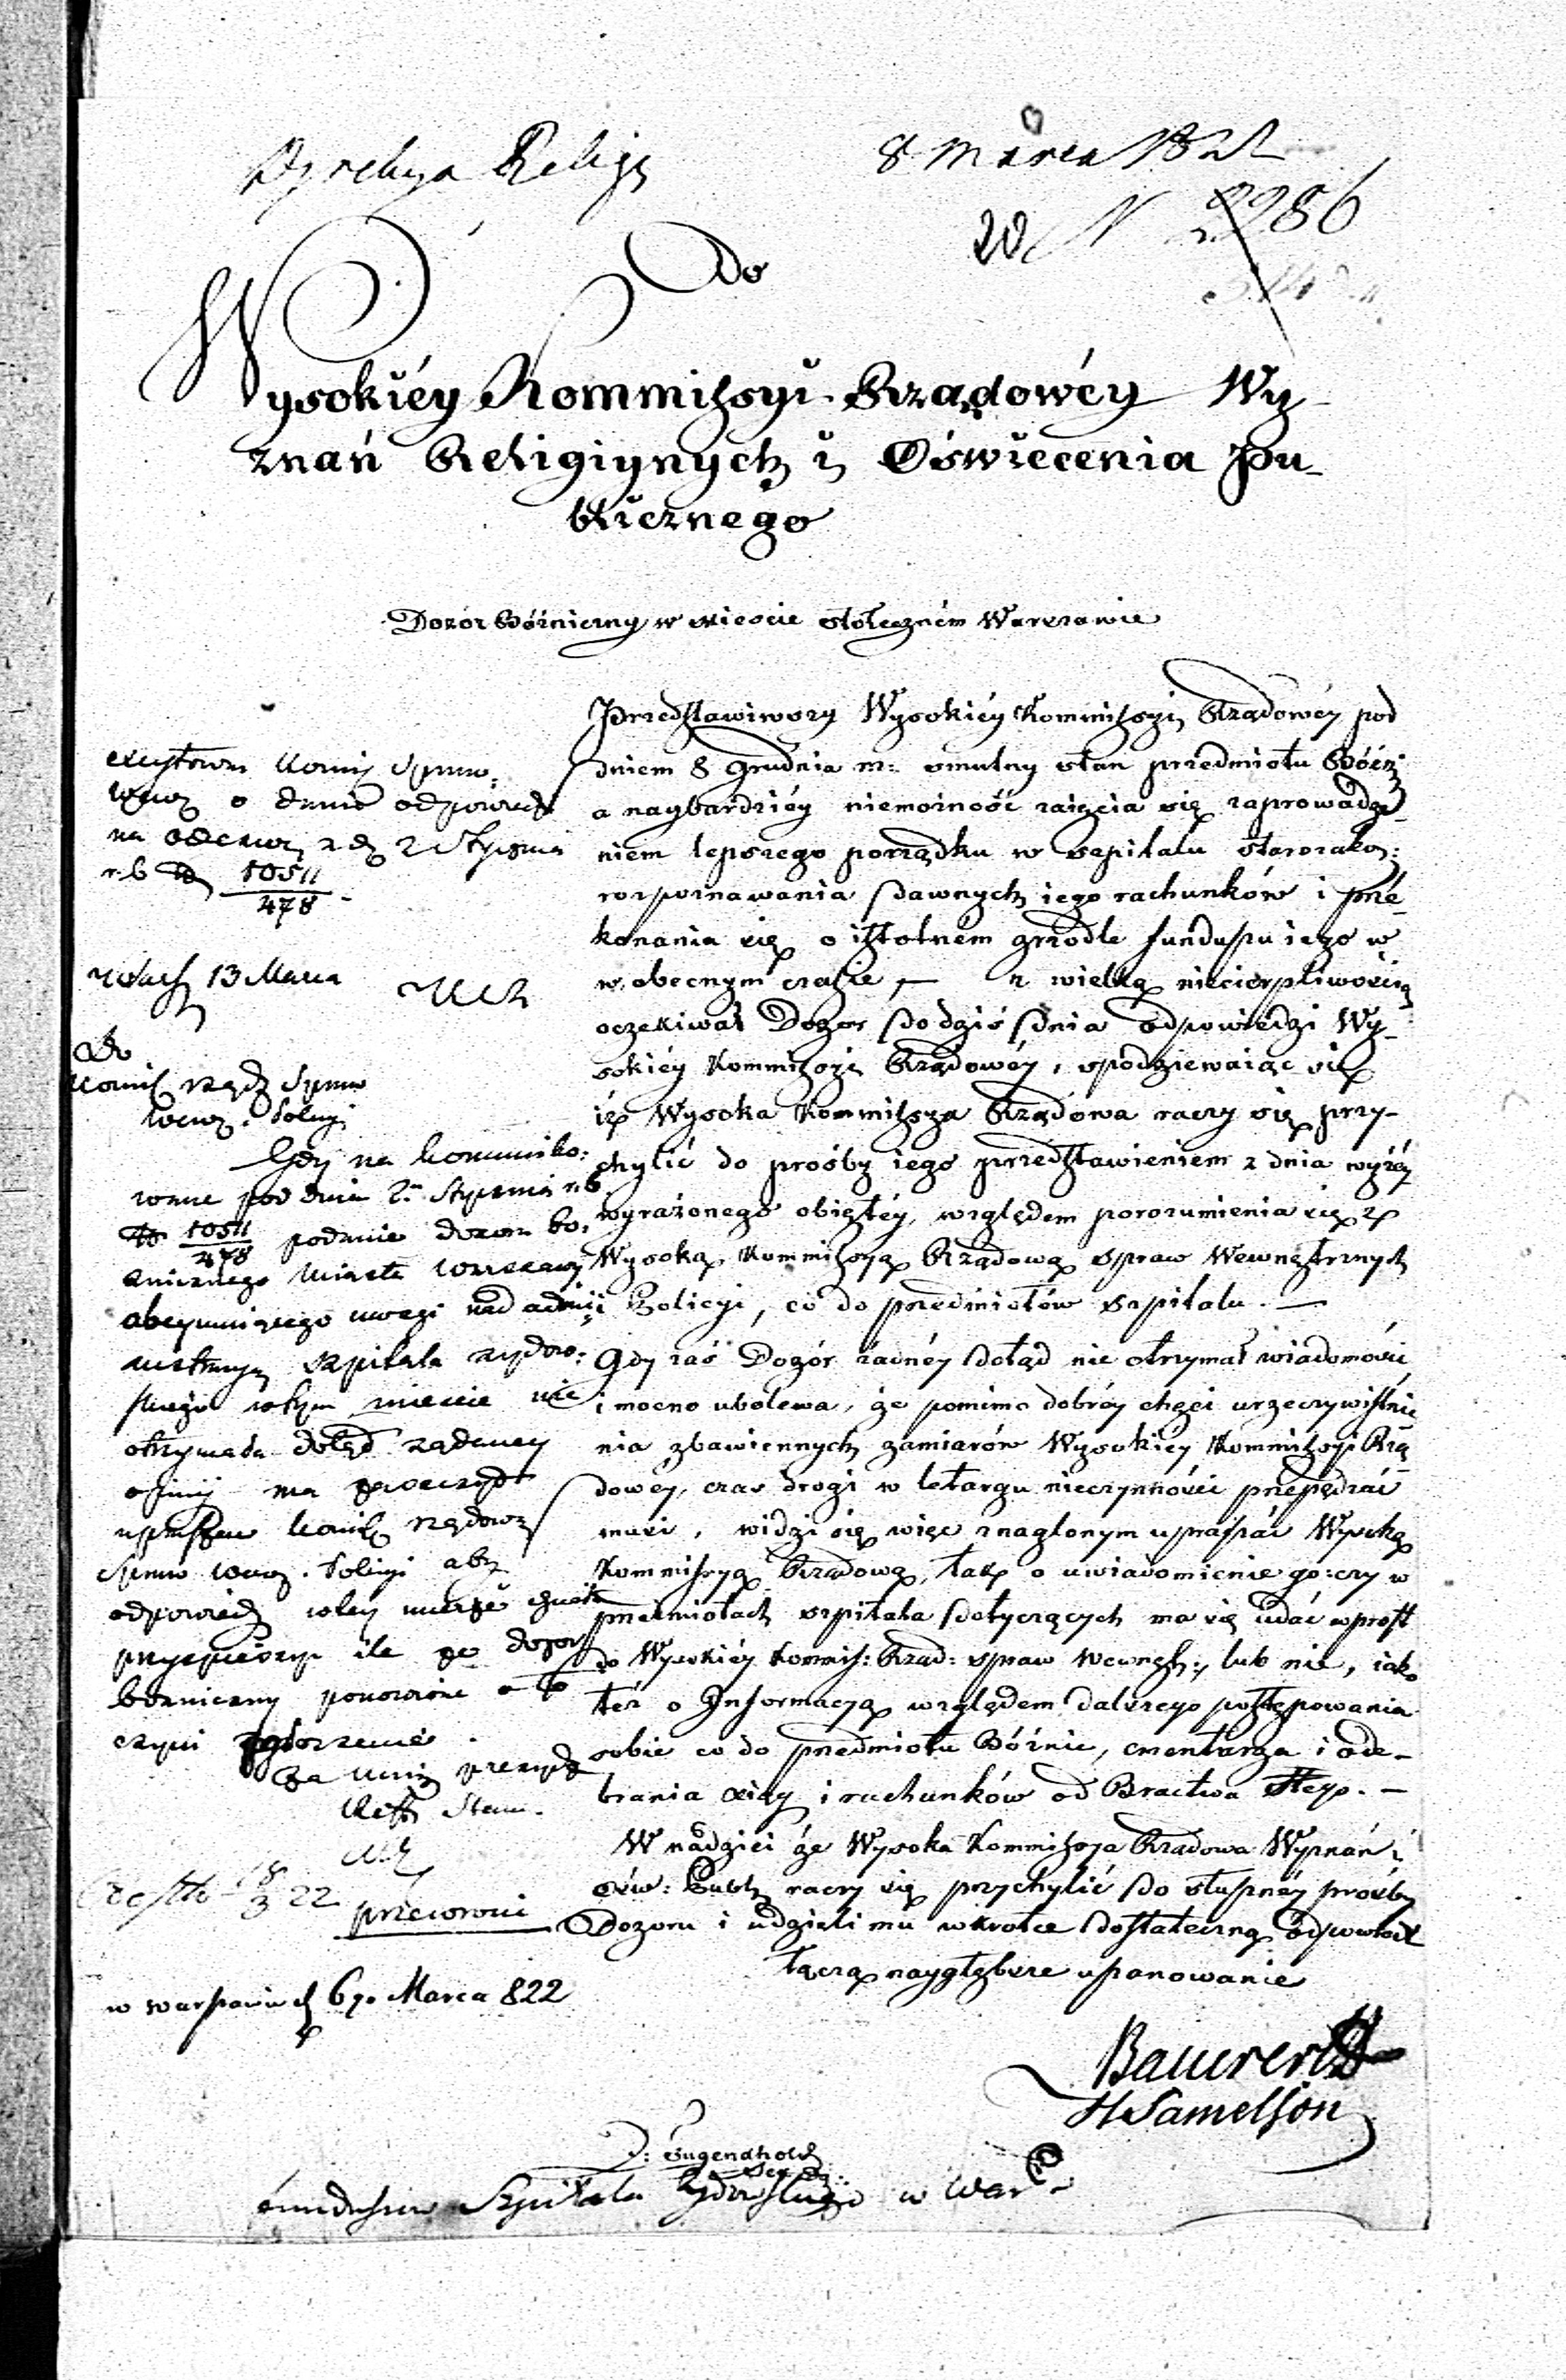 Dyrekcya Religy
8 Marca 1822
20 N 2286
Do
Wysokiéy Kommissyi Rządowéy Wy-
znań Religiynych i Oświecenia Pu-
blicznego
Dozór Bóżniczny w mieście stołeczném Warszawie
Przedstawiwszy Wysokiéy Kommissyi Rządowéy pod
dniem 8 Grudnia m: smutny stan przedmiotu Bóżn:
a naybardziéy niemożność zaięcia się zaprowadze-
niem lepszego porządku w szpitalu starozakon:
rozpoznawania dawnych iego rachunków i prze-
konania się o istotném źrzódle funduszu iego w
w obecnym czasie, — z wielką niecierpliwością
oczekiwał Dozor do dziś dnia odpowiedzi Wy-
sokiéy Kommissyi Rządowéy, spodziewaiąc się
iż Wysoka Kommissya Rządowa raczy się przy-
chylić do prośby iego przedstawieniem z dnia wyżéy
wyrażonego obiętéy, względem porozumienia się z
Wysoką Kommissyą Rządową spraw Wewnętrznych
i Policyi, co do przedmiotów szpitalu. —
Gdy zaś Dozór żadnéy dotąd nie otrzymał wiadomości
i mocno ubolewa, że pomimo dobréy chęci urzeczywistnie
nia zbawiennych zamiarów Wysokiey Kommissyi Rzą
dowey, czas drogi w letargu nieczynności przepędzać
musi, widzi się więc znaglonym upraszać Wysoką
Kommissyą Rządową, tak o uwiadomienie go: czy w
przedmiotach szpitala dotyczących ma się udać wprost
do Wysokiéy Kommis: Rząd: spraw Wewnęt:, lub nie, iako
téż o Informacyą względem dalszego postępowania
sobie co do przedmiotu Bóżnic, cmentarza i ode-
brania xiąg i rachunków od Bractwa tego. —
W nadziei że Wysoka Kommissya Rządowa Wyznań i
ośw: Publ: raczy się przychylić do słuszney prośby
Dozoru i udzieli mu wkrótce dostateczną odpowiedź
łączą naygłębsze uszanowanie
excytować Komis Spraw:
Wewn o danie odpowiedzi
na odezwę z d 2 Stycznia
r. b. 10511
478
13 Marca
Do
Komis rząd Spraw
Wewn. Policyi
Gdy na kommuniko:
wane pod dniem 2 Stycznia r. b.
10511
478 podanie dozoru bo:
żnicznego miasta Warszawy
obeymuiącego uwagi nad admi:
nistracyą szpitala żydow:
skiego w tym mieście nie
otrzymała dotąd żądaney
opinii ma zaszczyt
upraszać komis rządową
Spraw wewn. Policyi aby
odpowiedź w tey mierze
przyspieszyć ile że dozor
bożniczny ponownie o to
czyni zgłoszenie.
22
w Warszawie d 6go Marca 822
Bauerertz
H Samelson
J: Tugendhold
Szpitala Żydowskiego w War